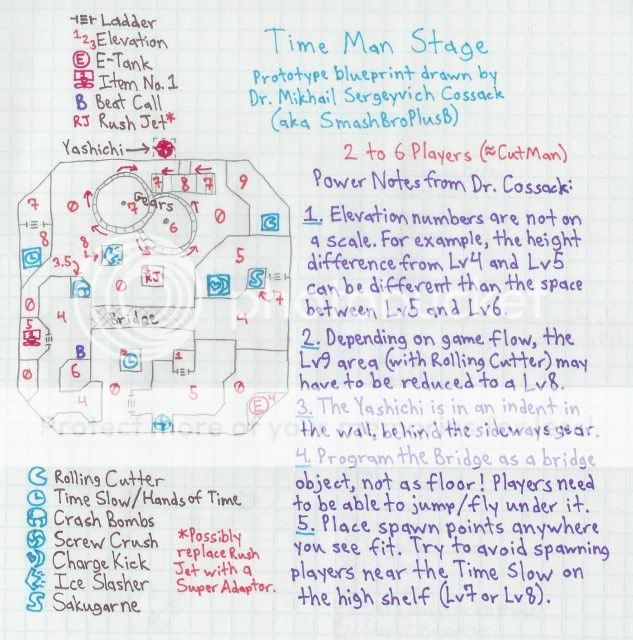 Ladder
1 2 3 Elevation
E E-Tank
1 Item No. 1
B Beat Call
RJ Rush Jet*
Time Man Stage
Prototype blueprint drawn by
Dr. Mikhail Sergeyvich Cossack
(aka SmashBroPlusB)
Yashichi→
2 to 6 Players (≈CutMan)
Power Notes from Dr. Cossack:
7 8 7 9
7 0 7 Gears 6 0
8 8 5
3.5 0 RJ 7
0 4 Bridge 4
5 1
B 2 1
0 6 0 0
4 5 E 4
1. Elevation numbers are not on
a scale. For example, the height
difference from Lv4 and Lv5
can be different than the space
between Lv5 and Lv6.
2. Depending on game flow, the
Lv9 area (with Rolling Cutter) may
have to be reduced to a Lv8.
3. The Yashichi is in an indent in
the wall, behind the sideways gear.
4. Program the Bridge as a bridge
object, not as floor! Players need
to be able to jump/fly under it.
5. Place spawn points anywhere
you see fit. Try to avoid spawning
players near the Time Slow on
the high shelf (Lv7 or Lv8).
Rolling Cutter
Time Slow/Hands of Time
Crash Bombs
Screw Crush
Charge Kick
Ice Slasher
Sakugarne
*Possibly
replace Rush
Jet with a
Super Adaptor.
photobucket